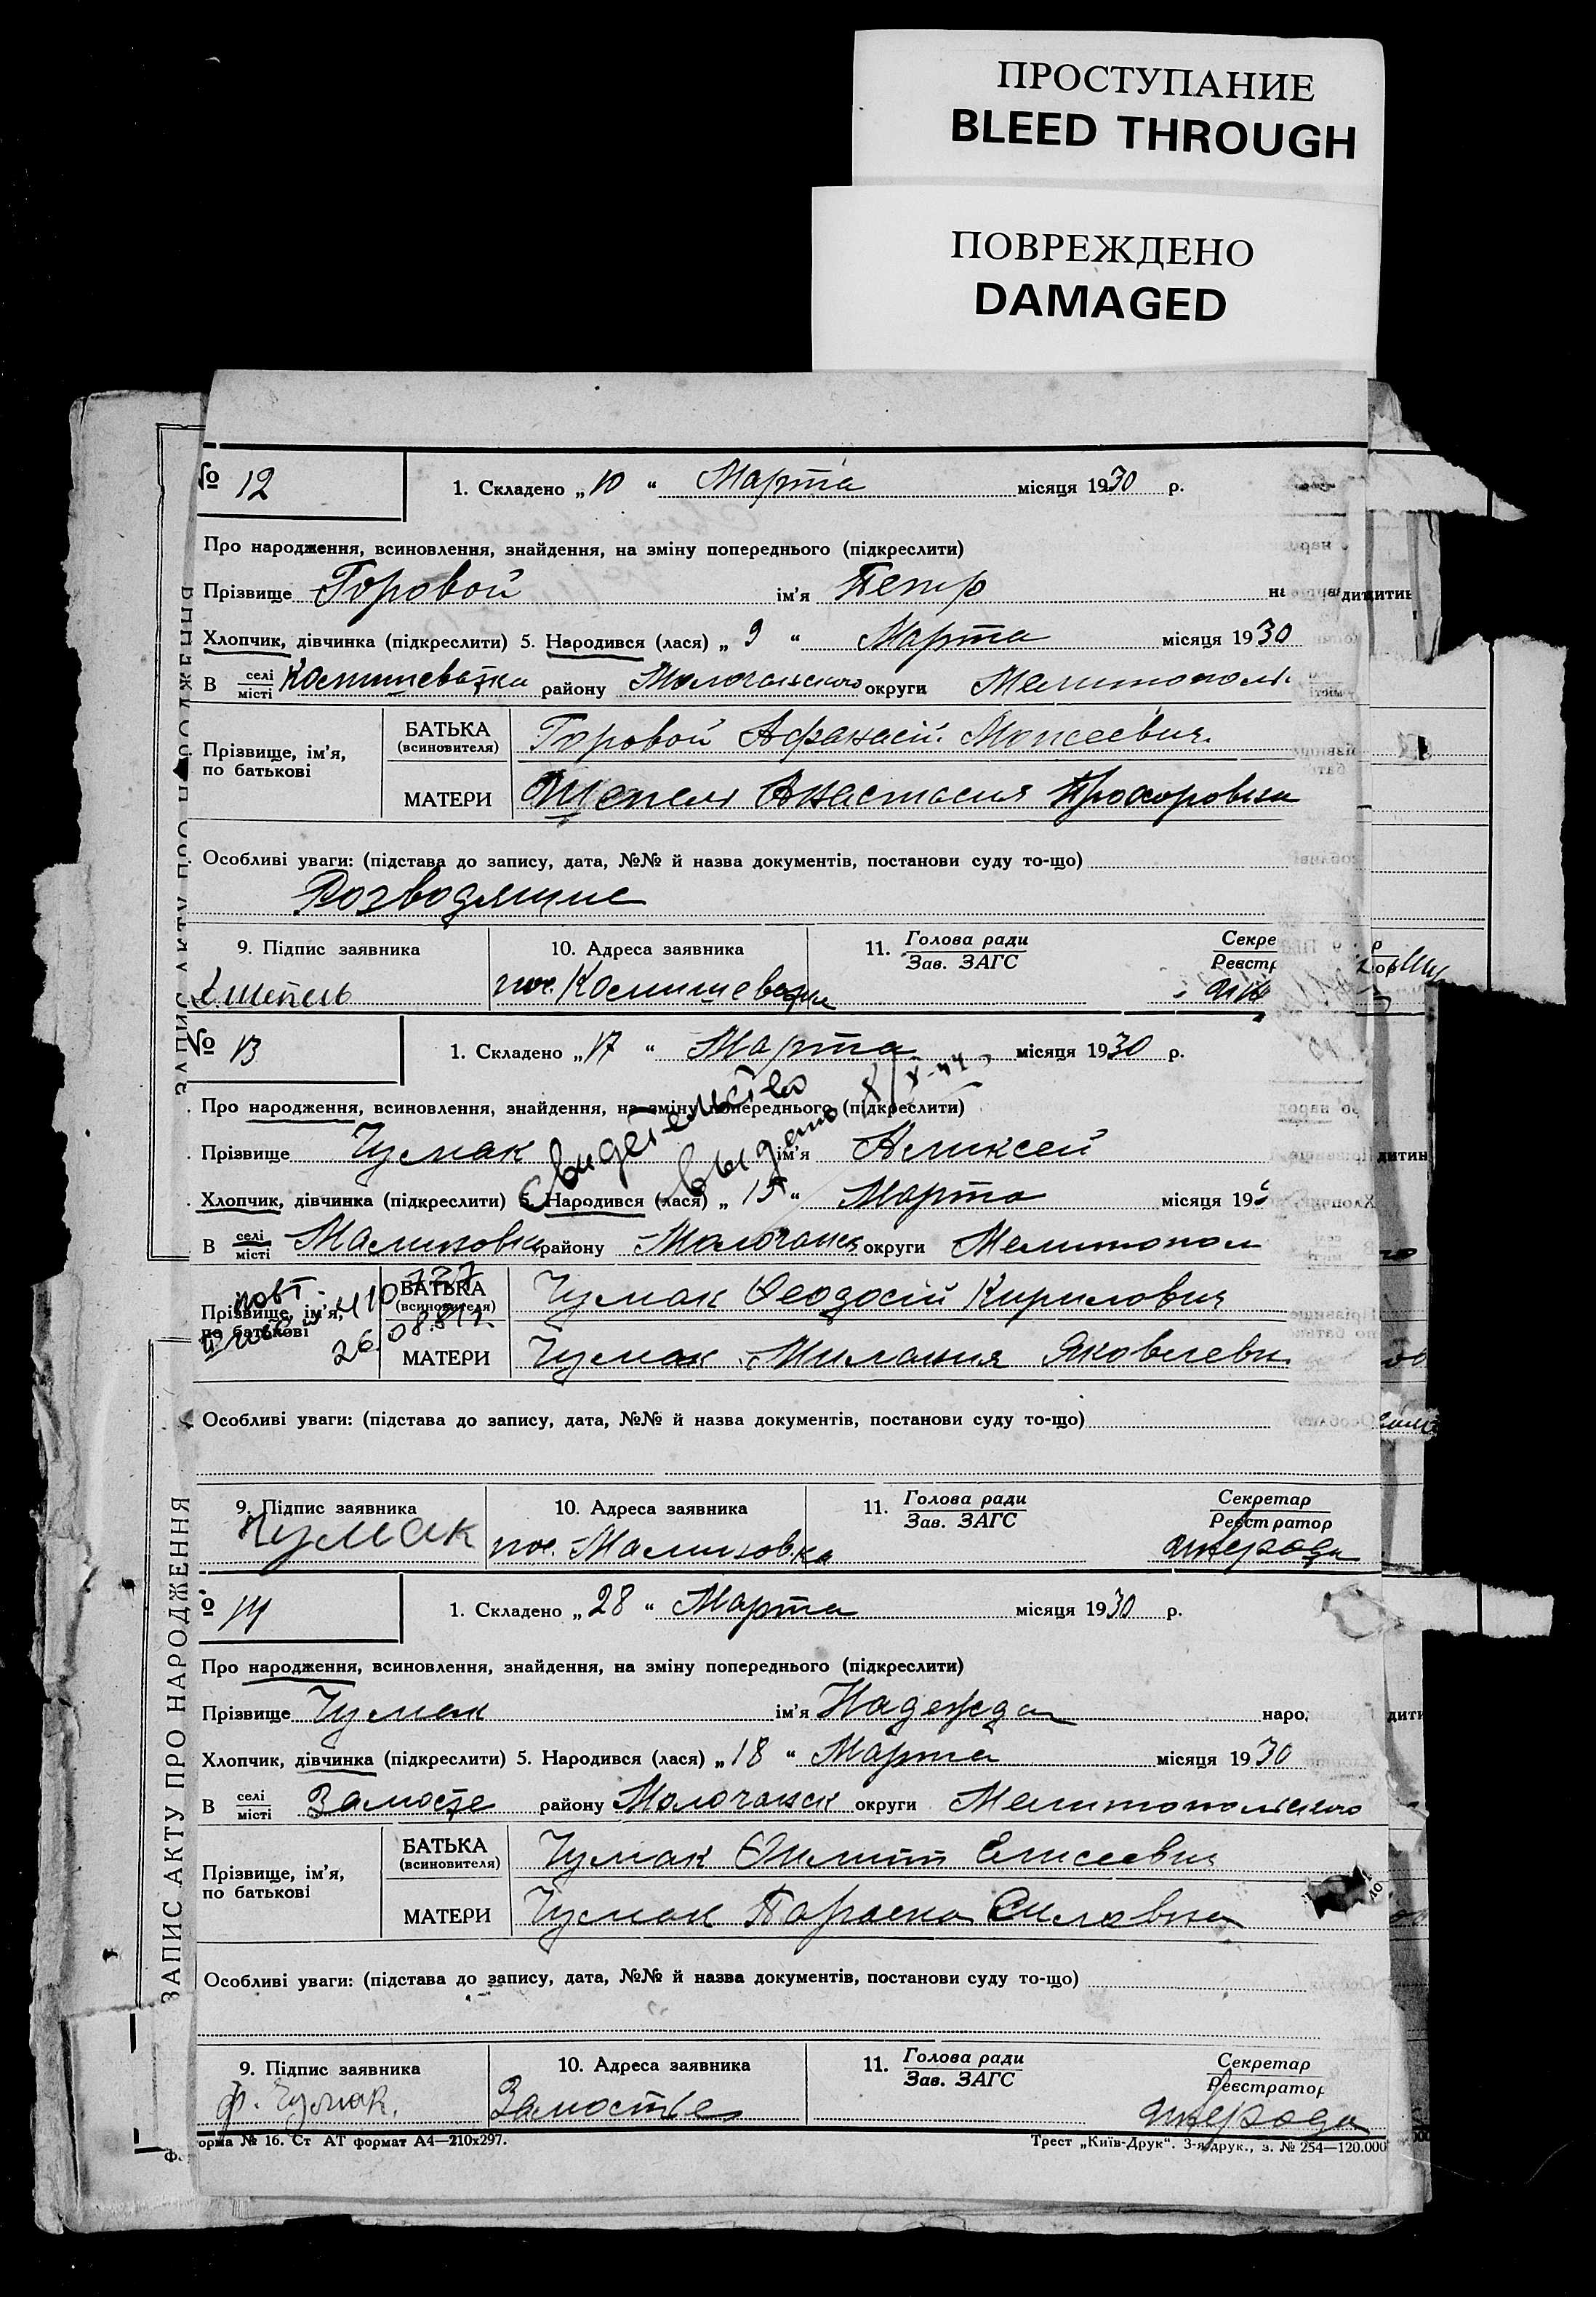 ПРОСТУПАНИЕ
BLEED THROUGH
ПОВРЕЖДЕНО
DAMAGED
№ 12 1. Складено „10“ Марта місяця 1930 р.
Про народження, всиновлення, знайдення, на зміну попереднього (підкреслити)
Прізвище Горовой ім'я Петр
Хлопчик, дівчинка (підкреслити) 5. Народився (лася) „9“ Марта місяця 1930
В селі/місті району округи Мелитополь
Прізвище, ім'я, по батькові
БАТЬКА (всиновителя) Горовой Афанасій Моисеевич
МАТЕРИ Шепель Анастасия Прохоровна
Особливі уваги: (підстава до запису, дата, №№ й назва документів, постанови суду то-що)
9. Підпис заявника 10. Адреса заявника 11. Голова ради/Зав. ЗАГС Секре Реєстр
Шепель пос.
№ 13 1. Складено „17“ Марта місяця 1930 р.
Свидетельство выдано
Про народження, всиновлення, знайдення, на зміну попереднього (підкреслити)
Прізвище Чумак ім'я Аликсей
Хлопчик, дівчинка (підкреслити) 5. Народився (лася) „15“ Марта місяця 19
В селі/місті Малиновка району Молочанск округи Мелитопол
Прізвище, ім'я, по батькові
повт.
БАТЬКА (всиновителя) Чумак Феодосій Кирилович
МАТЕРИ Чумак Милания Яковлевн
Особливі уваги: (підстава до запису, дата, №№ й назва документів, постанови суду то-що)
9. Підпис заявника 10. Адреса заявника 11. Голова ради/Зав. ЗАГС Секретар/Реєстратор
Чумак пос. Малиновка
№ 14 1. Складено „28“ Марта місяця 1930 р.
Про народження, всиновлення, знайдення, на зміну попереднього (підкреслити)
Прізвище Чумак ім'я Надежда наро
Хлопчик, дівчинка (підкреслити) 5. Народився (лася) „18“ Марта місяця 1930
В селі/місті Замостье району Молочанск округи Мелитопольского
Прізвище, ім'я, по батькові
БАТЬКА (всиновителя) Чумак Филипп Елисеевич
МАТЕРИ Чумак Параска Силовна
Особливі уваги: (підстава до запису, дата, №№ й назва документів, постанови суду то-що)
9. Підпис заявника 10. Адреса заявника 11. Голова ради/Зав. ЗАГС Секретар/Реєстратор
Ф. Чумак. Замостье
орма № 16. Ст АТ формат А4—210х297. Трест „Київ-Друк“. 3-я друк., з. № 254—120.000
ЗАПИС АКТУ ПРО НАРОДЖЕННЯ